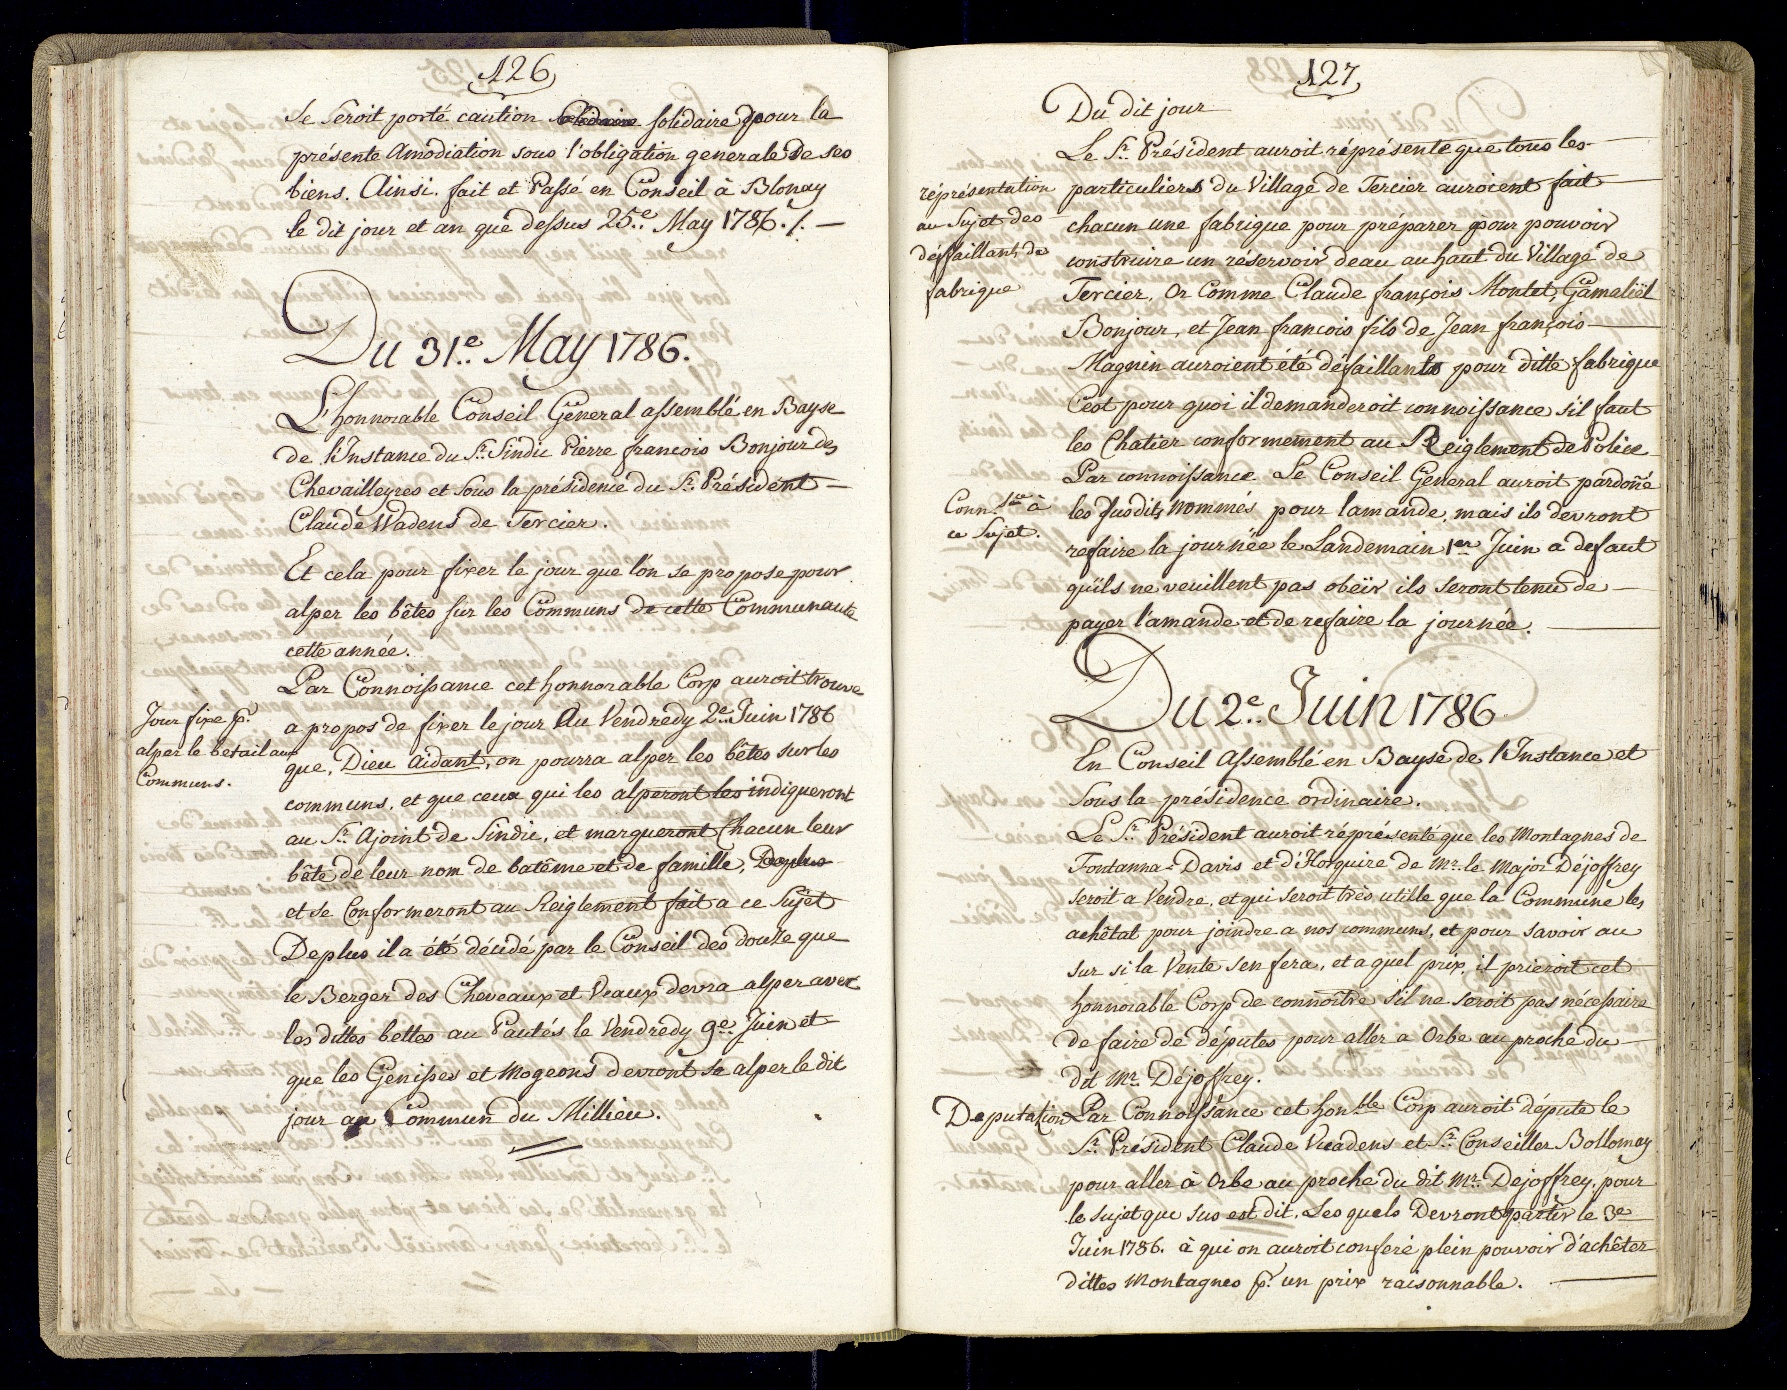 126
se seroit porté caution solidaire pour la
présente Amodiation sous l'obligation generale De ses
biens. Ainsi fait et Passé en Conseil à Blonay
le dit jour et an que dessus 25.e May 1786./. —
Du 31.e May 1786.
L'honnorable Conseil General assemblé en Bayse
de l'Instance du Sr. Sindic Pierre francois Bonjour des
Chevailleyres et sous la présidence du Sr. Président —
Claude Wadens de Tercier.
Et cela pour fixer le jour que l'on se propose pour
alper les bêtes sur les Communs de cette Communauté
cette année.
Par Connoissance cet honnorable Corp auroit trouvé
Jour fixe p.r
alper le betail aux
Communs.
a propos de fixer le jour Au Vendredy 2.e Juin 1786
que, Dieu Aidant, on pourra alper les bêtes sur les
communs, et que ceux qui les alperont les indiqueront
au Sr. Ajoint de Sindic, et marqueront Chacun leur
bête de leur nom de batême et de famille,
et se Conformeront au Reiglement fait a ce Sujet
Deplus il a été décidé par le Conseil des douze que
le Berger des Cheveaux et Veaux devra alper avec
les dittes bettes au Pautés le Vendredy 9.e Juin et
que les Genisses et Mogeons devront sa alper le dit
jour au Commun du Millieu.
127
Du dit jour
Le Sr. Président auroit réprésenté que tous les
réprésentation
au Sujet des
déffaillants de
fabrique
particuliers du Village de Tercier auroient fait
chacun une fabrique pour préparer pour pouvoir
construire un réservoir deau au haut du Village de
Tercier, Or Comme Claude françois Montet, Gamaliël
Bonjour, et Jean francois fils de Jean françois
Magnin auroient été défaillants pour ditte fabrique
C'est pour quoi il demanderoit connoissance s'il faut
les Chatier conformement au Reiglement de Police
Par connoissance Le Conseil General auroit pardoñé
Conn.ce à
ce Sujet.
les susdits nommés pour lamande, mais ils devront
refaire la journée le Landemain 1er Juin a defaut
qu'ils ne veuillent pas obéïr ils seront tenu de
payer l'amande et de refaire la journée.
Du 2.e Juin 1786
En Conseil Assemblé en Bayse de l'Instance et
Sous la présidence ordinaire.
Le Sr. Président auroit réprésenté que les Montagnes de
Fontanna-Davis et d'Horquire de Mr. le Major Déjoffrey
seroit a Vendre, et qui seroit très utille que la Commune les
achêtat pour joindre a nos communs, et pour savoir au
sur si la Vente s'en fera, et a quel prix, il prieroit cet
honnorable Corp de connoître s'il ne seroit pas nécessaire
de faire de députes pour aller a Orbe au proche du
dit Mr. Déjoffrey.
Deputation
Par Connoissance cet honble Corp auroit députe le
Sr. Président Claude Vuadens et Sr. Conseiller Bollomay
pour aller à Orbe au proche du dit Mr. Dejoffrey, pour
le sujet que sus est dit, Les quels Devront partir le 3e
Juin 1786. à qui on auroit conferé plein pouvoir d'achêter
dittes Montagnes p.r un prix raisonnable.